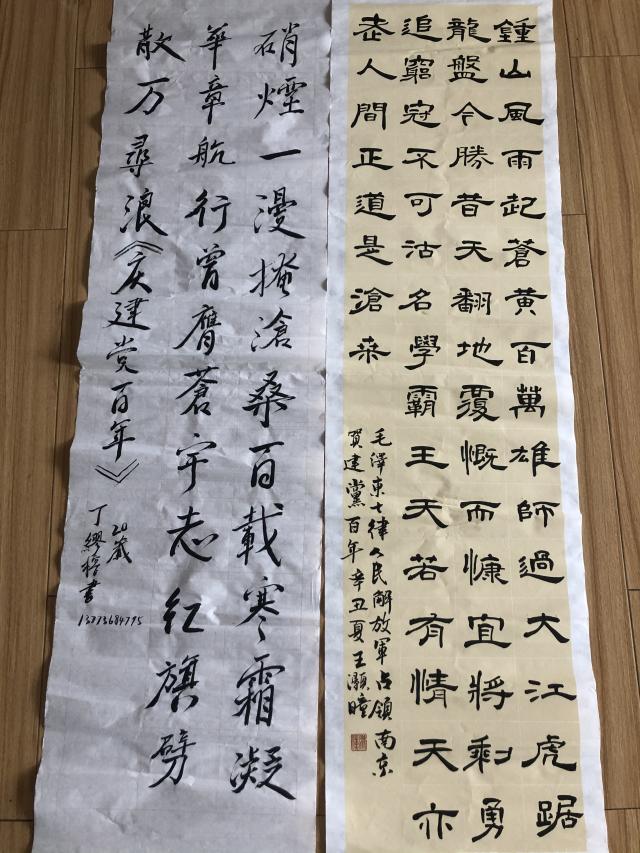 鍾山風雨起蒼黄百萬雄師過大江虎踞
龍盤今勝昔天翻地覆慨而慷宜將剩勇
追窮寇不可沽名學霸王天若有情天亦
老人間正道是滄桒
毛澤東七律人民解放軍占領南京
賀建黨百年辛丑夏王灝曈
硝煙一漫掩滄桑百載寒霜凝
華章航行曾膺蒼宇志红旗劈
散万尋浪《庆建党百年》
20歲
丁繆楷書
13773684795